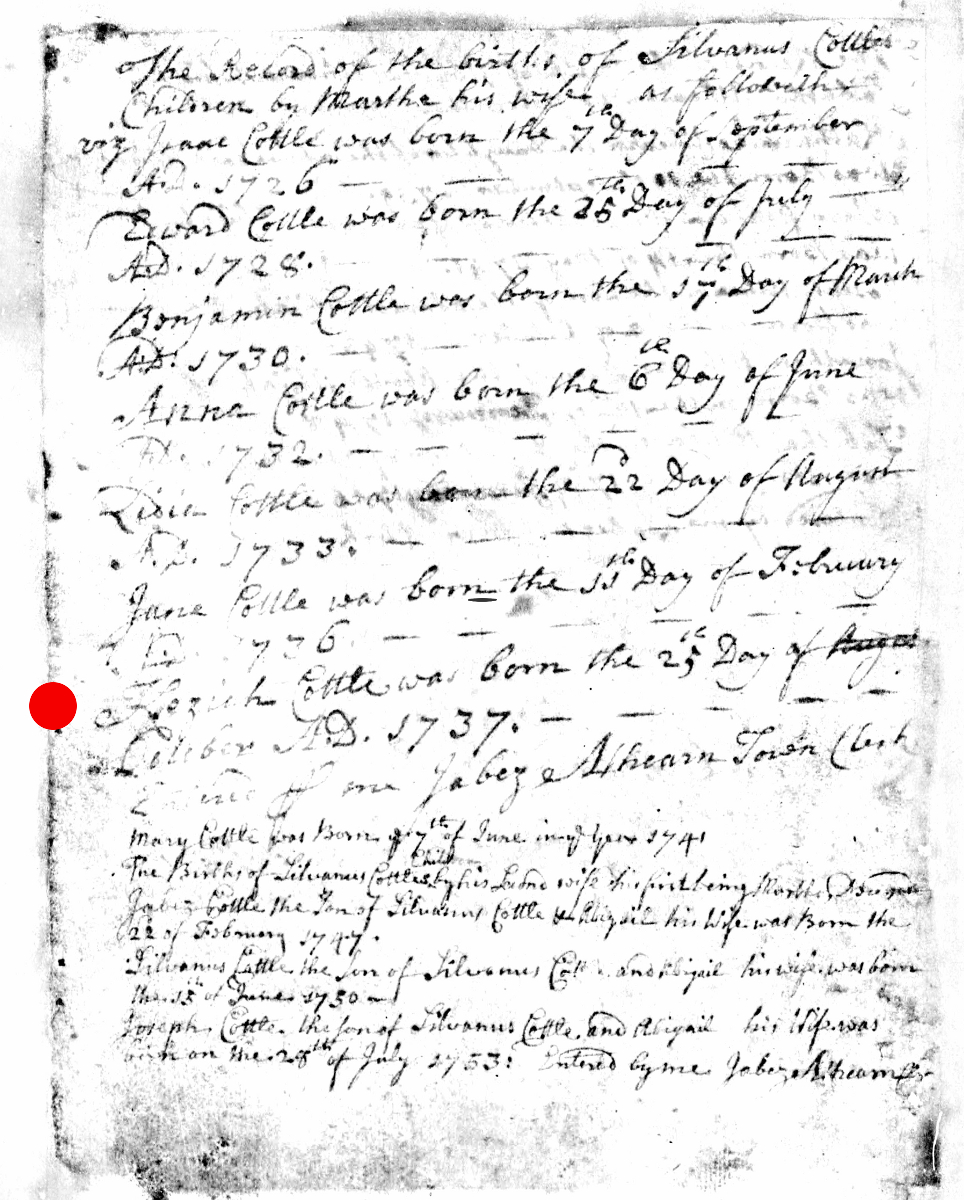 The Record of the births of Silvanus Cottles
Children by Martha his wife as followeth
viz Isaac Cottle was born the 7th Day of September
A.D. 1726
Edward Cottle was born the 25th Day of July
A.D. 1728.
Benjamin Cottle was born the 17th Day of March
A.D. 1730.
Anna Cottle was born the 6th Day of June
A.D. 1732.
Cottle was born the 22d Day of August
A.D. 1733.
Jane Cottle was born the 11th Day of February
A.D. 1736
Cottle was born the 25th Day of Augus
October A.D. 1737.
Entered me Jabez Athearn Town Clerk
Mary Cottle was Born ye 7th of June in ye Year 1741
The Births of Silvanus Cottles Children by his second wife his first being Martha Deceased
Jabez Cottle the Son of Silvanus Cottle & Abigail his Wife was Born the
22 of February 1747.
Silvanus Cottle the Son of Silvanus Cottle and Abigail his wife was born
the 15th of June 1750
Joseph Cottle the son of Silvanus Cottle and Abigail his Wife was
born on the 28th of July 1753: Entered by me Jabez Athearn